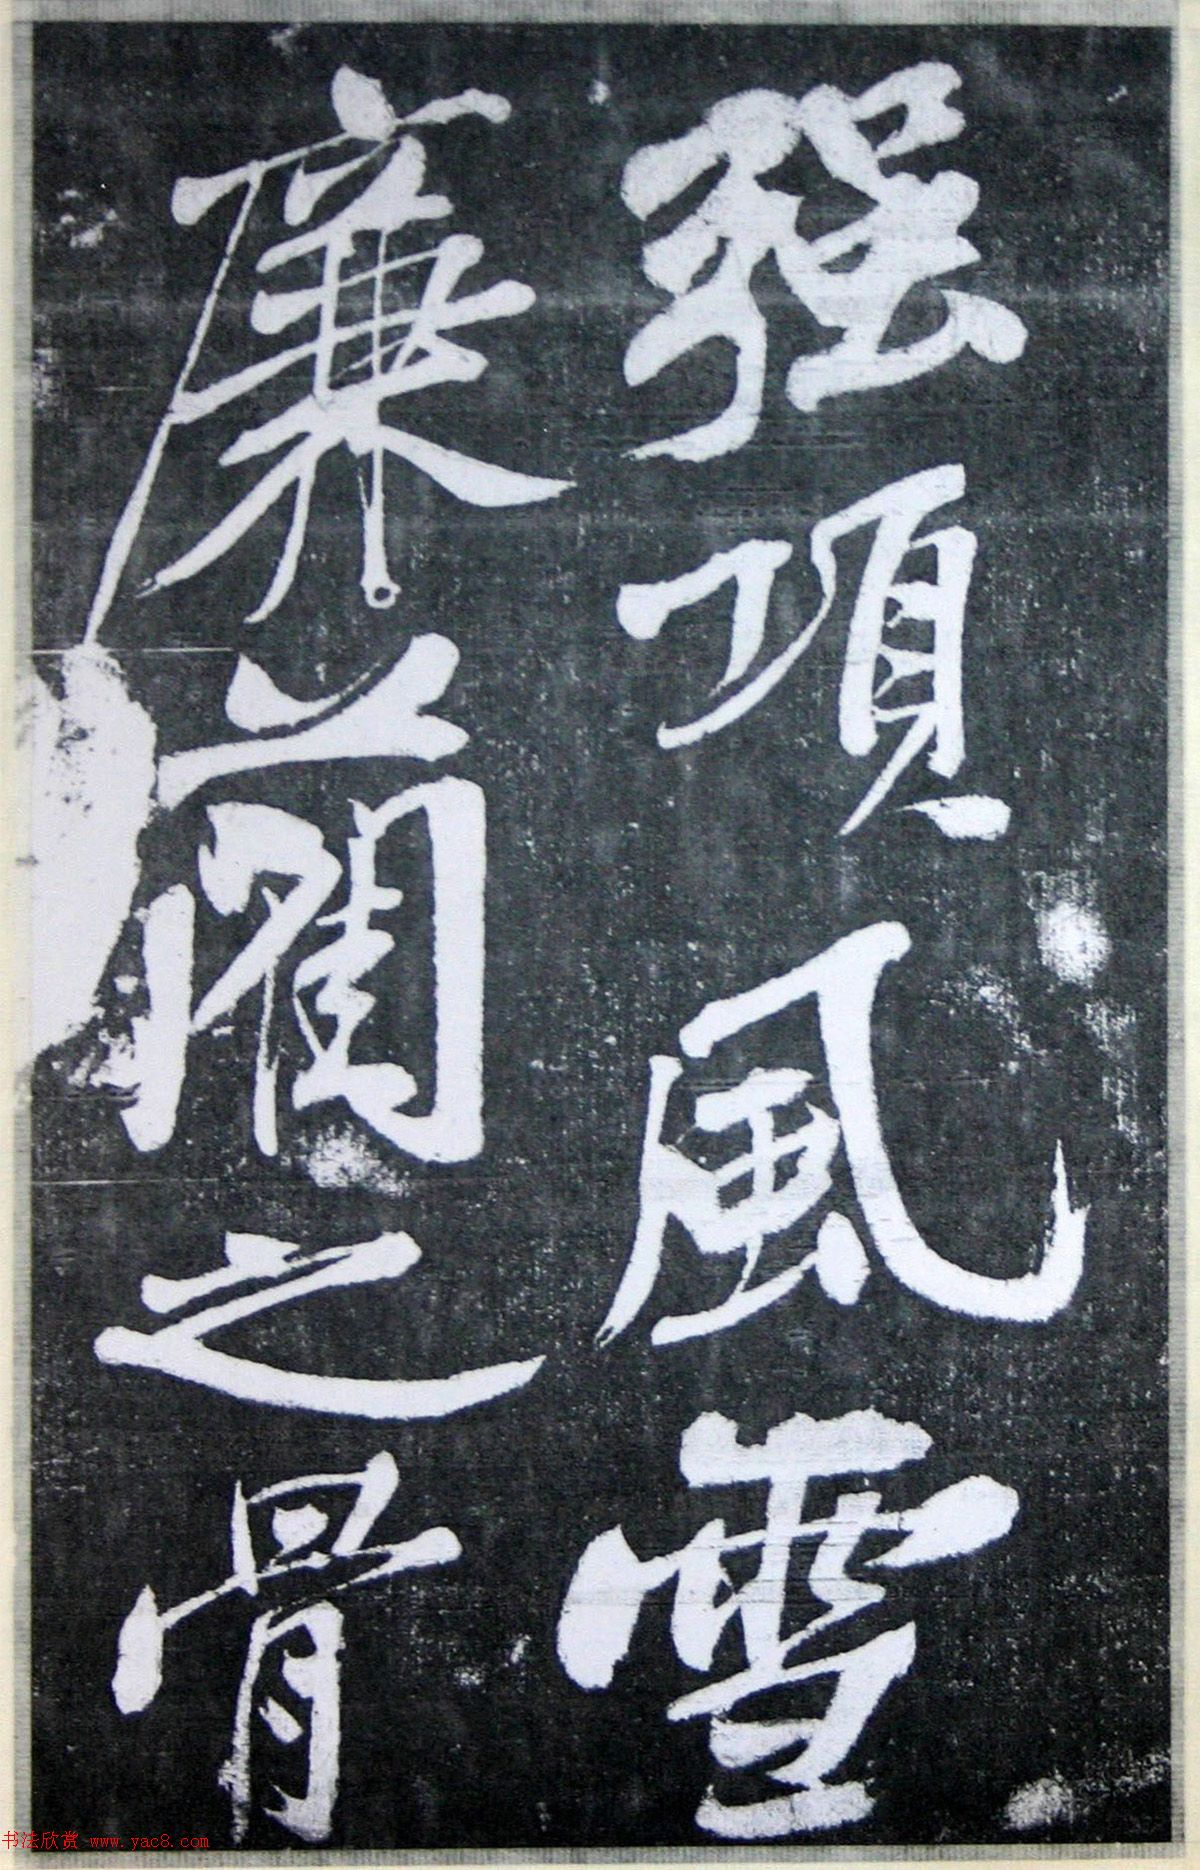 强項風雪
廉藺之骨
书法欣赏 www.yac8.com